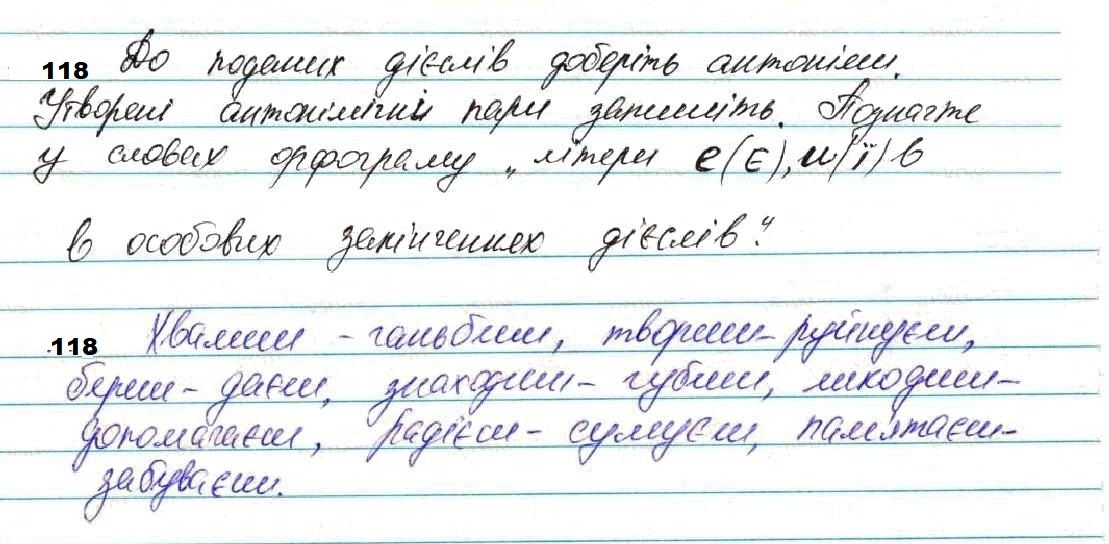 118 До поданих дієслів доберіть антоніми.
Утворені антонімічні пари запишіть. Позначте
у словах орфограму „літери е(є), и(ї) в
в особових закінченнях дієслів".
118 Хвалиш - ганьбиш, твориш - руйнуєш,
береш - даєш, знаходиш - губиш, шкодиш -
допомагаєш, радієш - сумуєш, пам'ятаєш -
забуваєш.